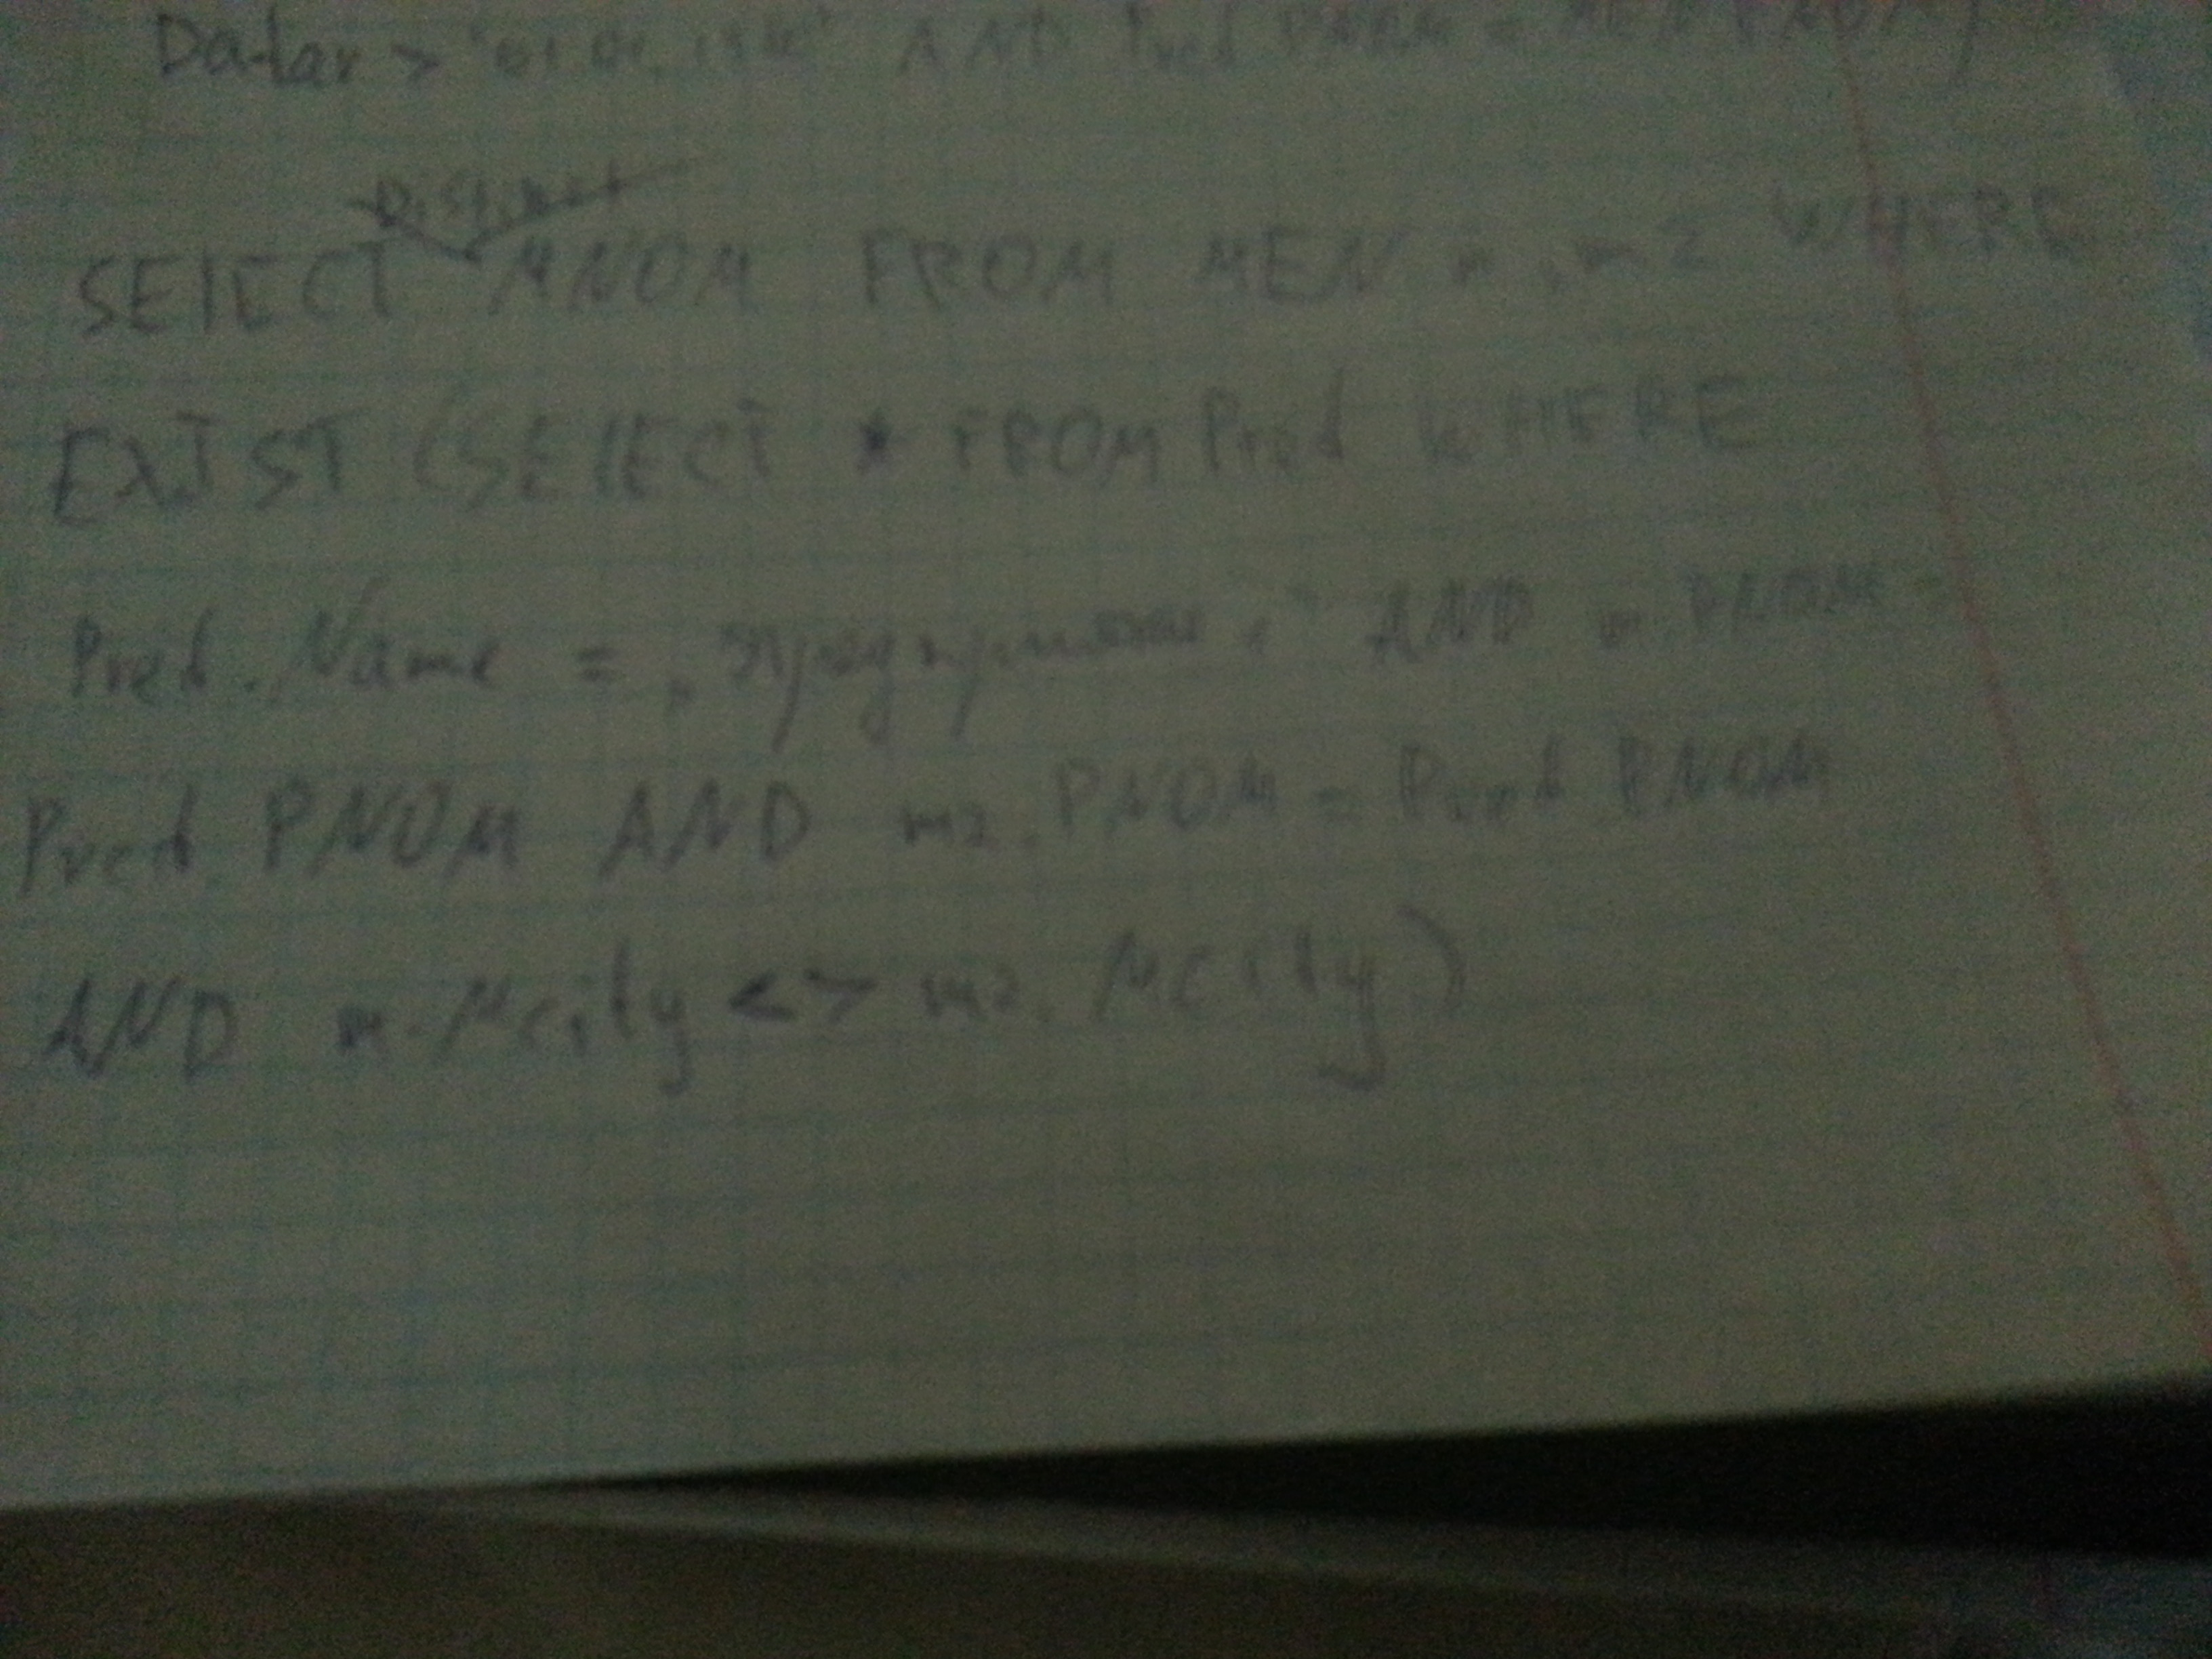 Datar > "01 01 AND Pred PNOM =
Distinct
SElECT MNOM FROM MEN m, m2 WHERE
EXIST (SElECT * FROM Pred WHERE
Pred. Name = „ " AND m. PNOM =
Pred PNOM AND m2. PNOM = Pred PNOM
AND m. Mcity <> m2. Mcity)